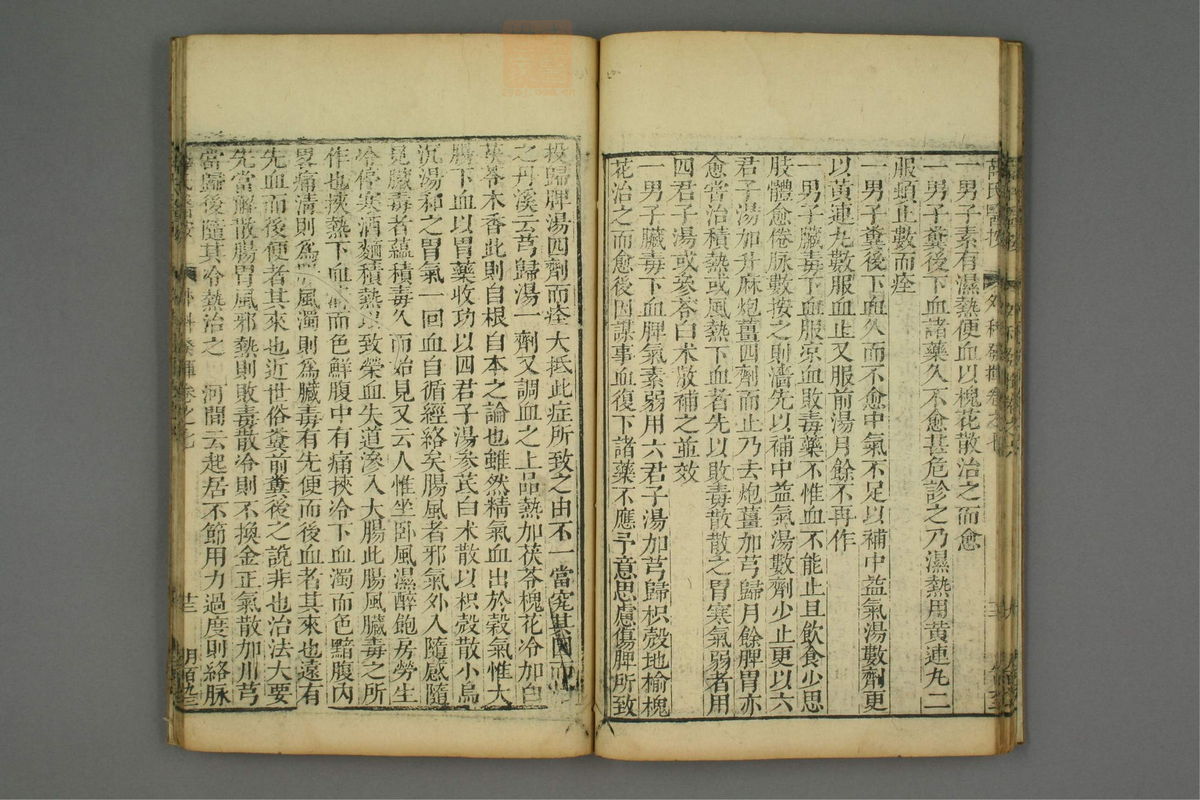 薛氏醫按 外科發揮卷之七
一男子素有濕熱便血以槐花散治之而愈
一男子糞後下血諸藥久不愈甚危診之乃濕熱用黃連丸二
服頓止數而痊
一男子糞後下血久而不愈中氣不足以補中益氣湯數劑更
以黃連丸數服血止又服前湯月餘不再作
一男子臟毒下血服凉血敗毒藥不惟血不能止且飲食少思
肢體愈倦脉數按之則濇先以補中益氣湯數劑少止更以六
君子湯加升麻炮薑四劑而止乃去炮薑加芎歸月餘脾胃亦
愈甞治積熱或風熱下血者先以敗毒散散之胃寒氣弱者用
四君子湯或參苓白术散補之並效
一男子臟毒下血脾氣素弱用六君子湯加芎歸枳殻地榆槐
花治之而愈後因謀事血復下諸藥不應予意思慮傷脾所致
投歸脾湯四劑而痊大抵此症所致之由不一當究其因而
之丹溪云芎歸湯一劑又調血之上品熱加茯苓槐花冷加白
茯苓木香此則自根自本之論也雖然精氣血出於榖氣惟大
腸下血以胃藥收功以四君子湯參茋白术散以枳殻散小烏
沉湯和之胃氣一回血自循經絡矣腸風者邪氣外入隨感隨
見臟毒者蘊積毒久而始見又云人惟坐卧風濕醉飽房勞生
冷停寒酒麵積熱以致榮血失道滲入大腸此腸風臟毒之所
作也挾熱下血清而色鮮腹中有痛挾冷下血濁而色黯腹内
畧痛清則為腸風濁則為臟毒有先便而後血者其來也遠有
先血而後便者其來也近世俗糞前糞後之說非也治法大要
先當解散腸胃風邪熱則敗毒散冷則不換金正氣散加川芎
當歸後隨其冷熱治之 河間云起居不節用力過度則絡脉
薛氏醫按 外科發揮卷之七 廿三